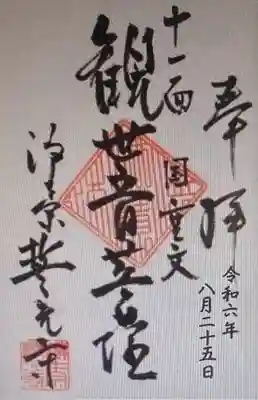 奉拝
令和六年
八月二十五日
国重文
十一面
観世音菩薩
寺